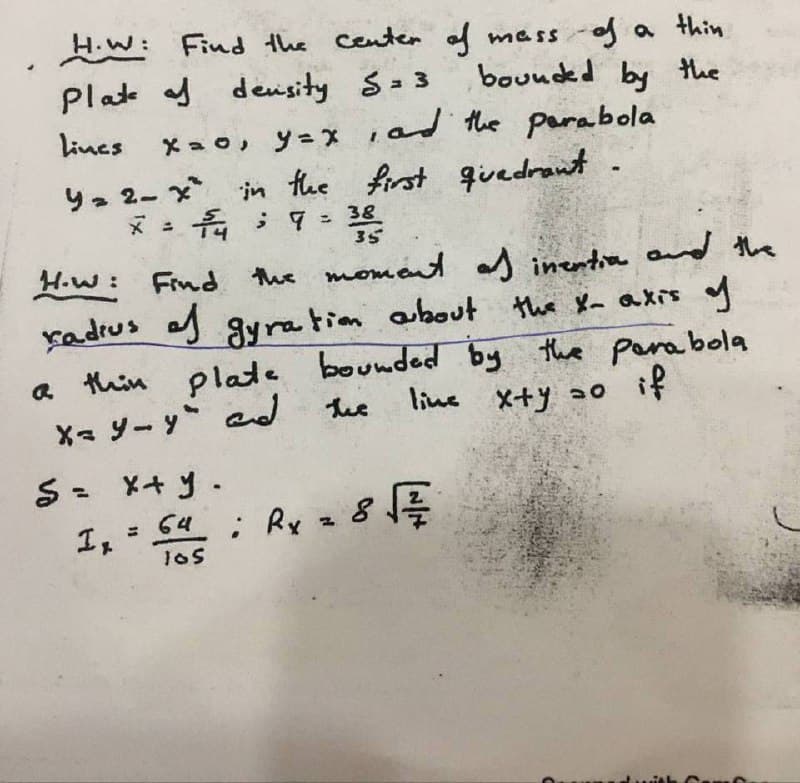 H.W: Find the center of mass of a thin
Plate of density δ = 3 bounded by the
lines x = 0, y = x, and the parabola
y = 2 - x² in the first quadrant.
x̄ = 5/14 ; ȳ = 38/35
H.W: Find the moment of inertia and the
radius of gyration about the x-axis of
a thin plate bounded by the parabola
x = y - y² and the line x+y = 0 if
δ = x + y.
Iₓ = 64/105 ; Rₓ = 8 √(2/7)